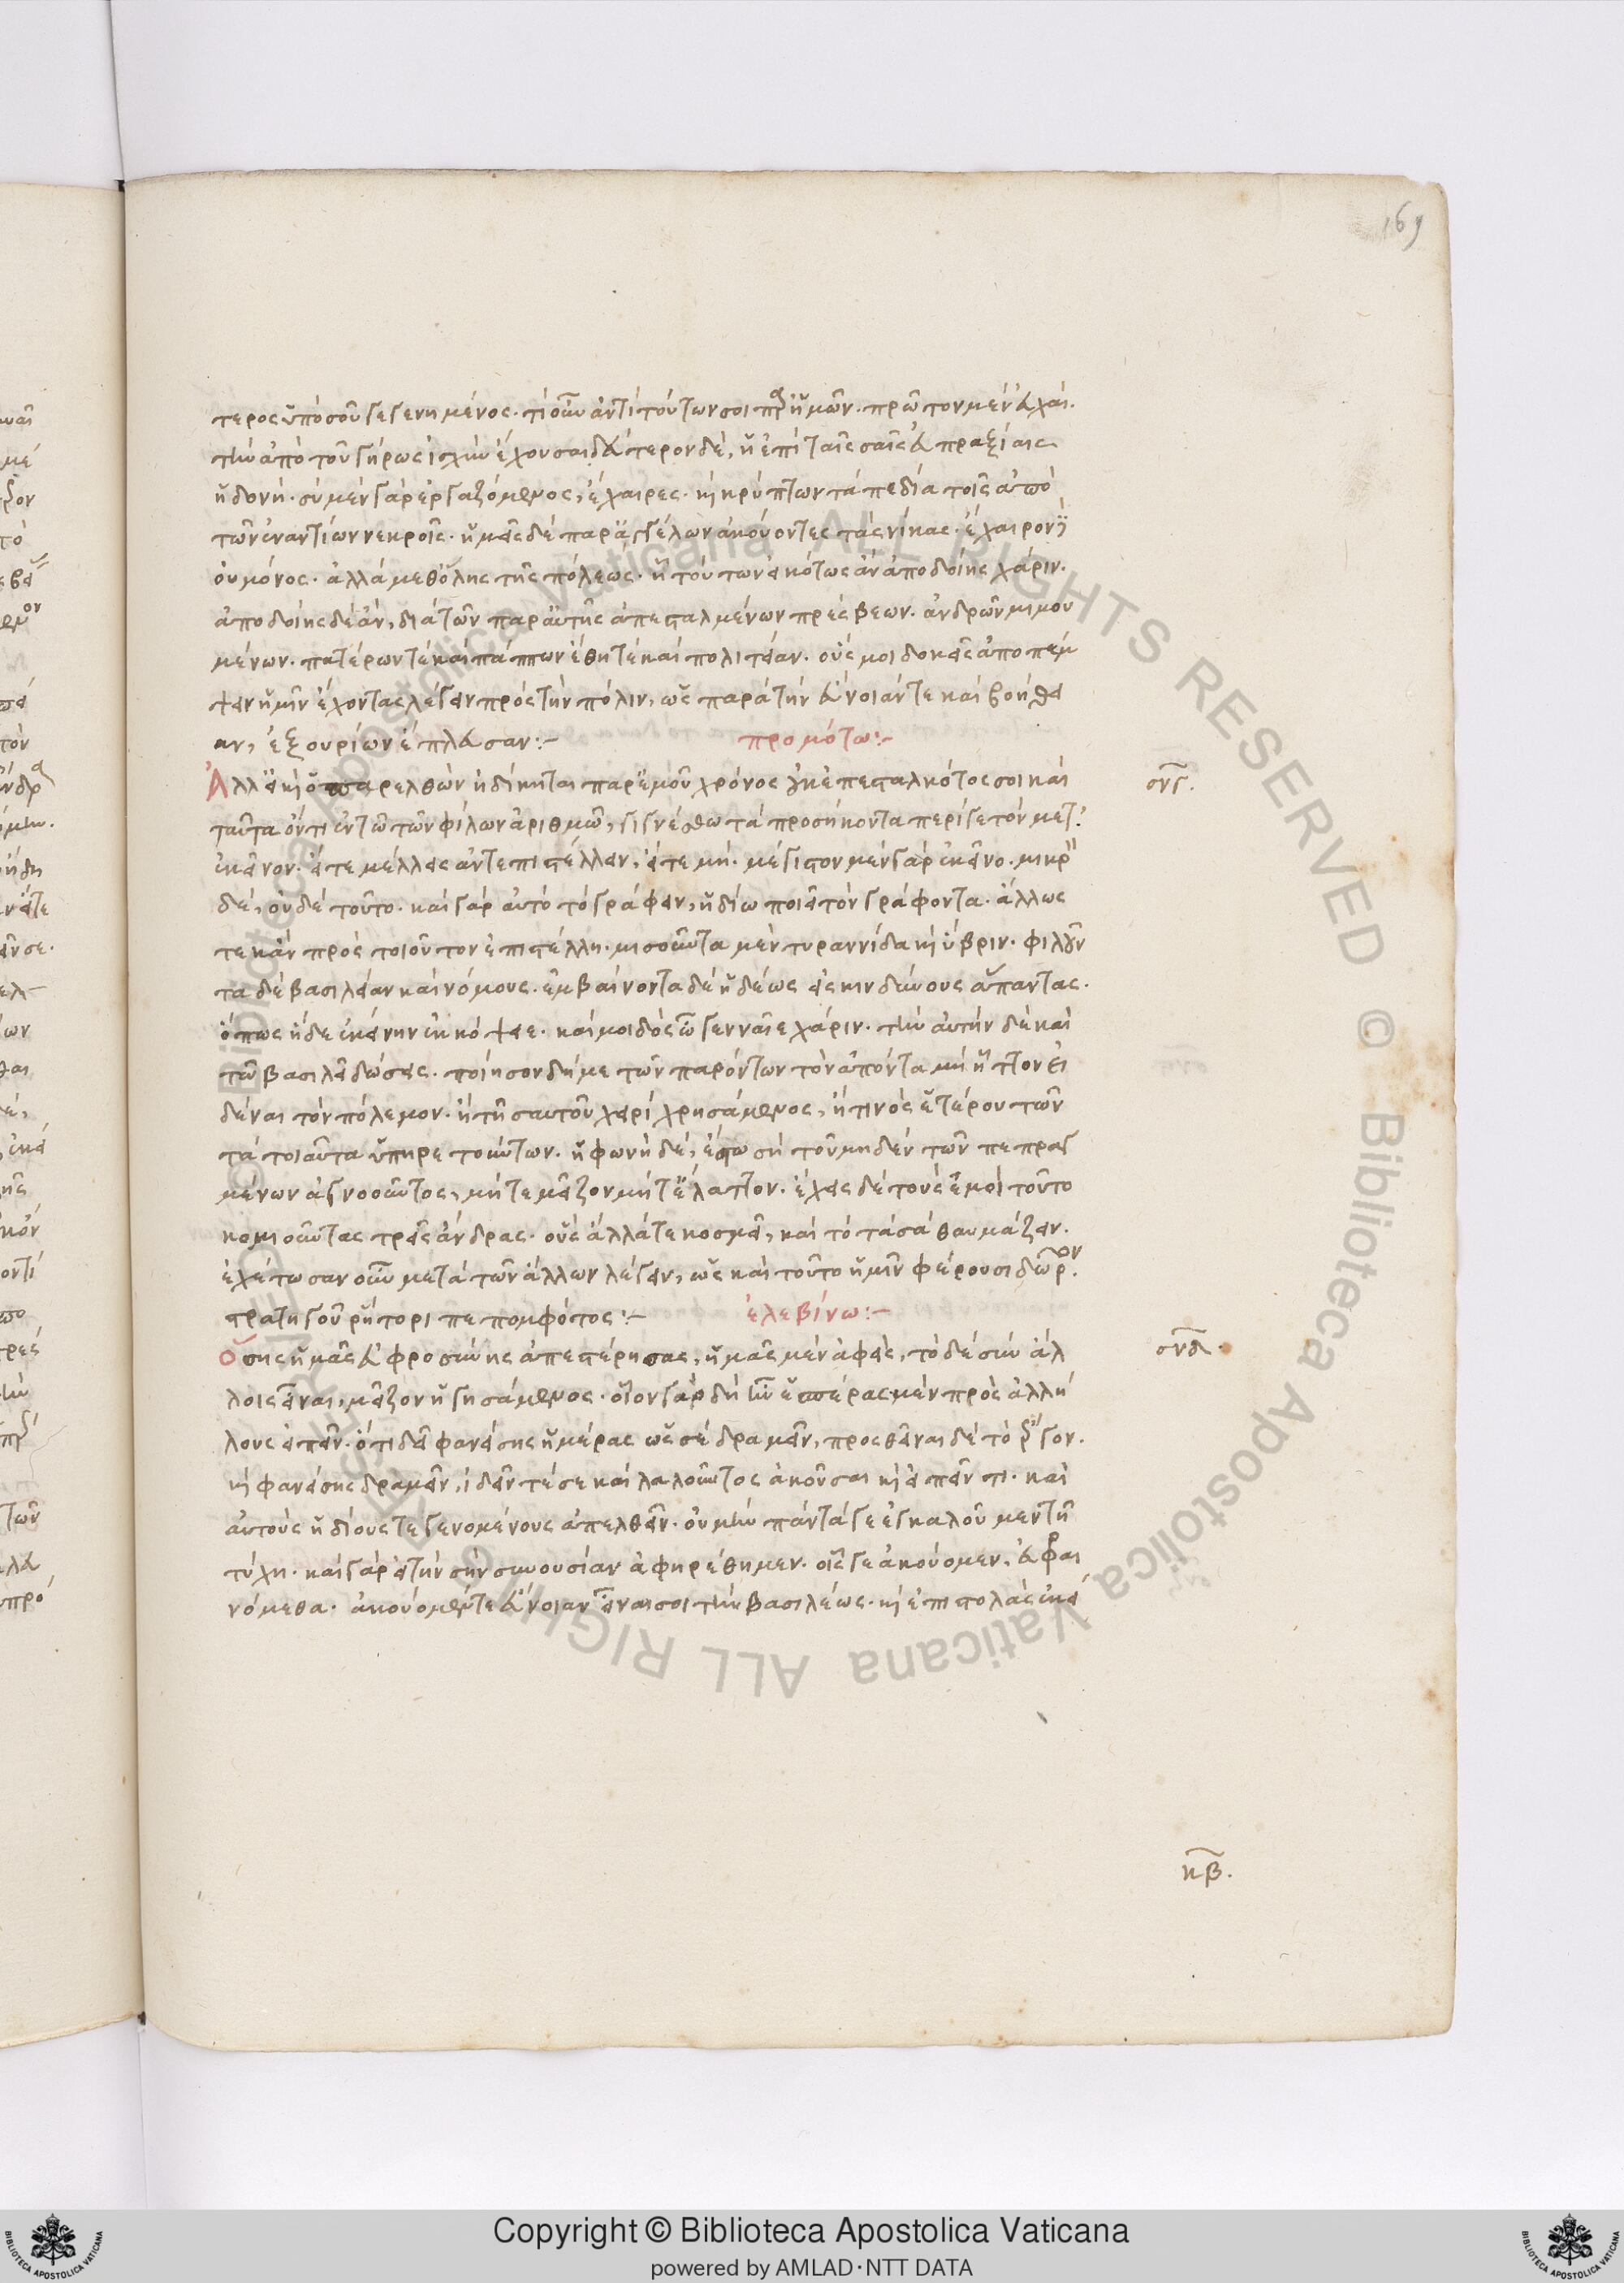 169
τερος ὑπὸ σοῦ γεγενημένος. τί οὖν ἀντὶ τούτων σοι παρ' ἡμῶν. πρῶτον μὲν εὐχαὶ.
τὴν ἀπὸ τοῦ γήρως ἰσχὺν ἔχουσαι δεύτερον δὲ, ἡ ἐπὶ ταῖς σαῖς εὐπραξίαις
ἡδονή. σὺ μὲν γὰρ ἐργαζόμενος, ἔχαιρες. κὶ κρύπτων τὰ πεδία τοῖς ἀπὸ
τῶν ἐναντίων νεκροῖς. ἡμεῖς δὲ παρ' ἀγγέλων ἀκούοντες τὰς νίκας. ἔχαιρον
οὐ μόνος. ἀλλὰ μεθ' ὅλης τῆς πόλεως. ἣ τούτων εἰκότως ἂν ἀποδοίης χάριν.
ἀποδοίης δὲ ἂν, διὰ τῶν παρ' αὐτῆς ἀπεσταλμένων πρέσβεων. ἀνδρῶν μιμου
μένων. πατέρων τὲ καὶ πάππων ἔθη τὲ καὶ πολιτείαν. οὕς μοι δοκεῖς ἀποπέμ
ψειν ἡμῖν ἔχοντας λέγειν πρὸς τὴν πόλιν, ὡς παρὰ τὴν εὔνοιάν τε καὶ βοήθει
αν, ἐξ οὐρίων ἔπλευσαν:-
προμότω:-
Ἀλλ' εἰ κὶ ὁ παρελθὼν ἠδίκηται παρ' ἐμοῦ χρόνος οὐκ ἐπεσταλκότος σοι καὶ
ταῦτα ὄντι ἐν τῶ τῶν φίλων ἀριθμῶ, γιγνέσθω τὰ προσήκοντα περί γε τὸν μετ'
σνγ.
ἐκεῖνον. εἴτε μέλλεις ἀντεπιστέλλειν, εἴτε μή. μέγιστον μὲν γὰρ ἐκεῖνο. μικρὸν
δὲ, οὐδὲ τοῦτο. καὶ γὰρ αὐτὸ τὸ γράφειν, ἡδίω ποιεῖ τὸν γράφοντα. ἄλλως
τε κἂν πρὸς τοιοῦτον ἐπιστέλλη. μισοῦντα μὲν τυραννίδα κὶ ὕβριν. φιλοῦν
τα δὲ βασιλείαν καὶ νόμους. ἐμβαίνοντα δὲ ἡδέως εἰς κινδύνους ἅπαντας.
ὅπως ἥδε ἐκείνην ἐκκόψει. καί μοι δὸς ὦ γενναῖε χάριν. τὴν αὐτὴν δὲ καὶ
τῶ βασιλεῖ δώσεις. ποίησον δή με τῶν παρόντων τὸν ἀπόντα μὴ ἧττον εἰ
δέναι τὸν πόλεμον. ἢ τῆ σαυτοῦ χειρὶ χρησάμενος, ἤ τινὸς ἑτέρου τῶν
τὰ τοιαῦτα ὑπηρετούντων. ἡ φωνὴ δὲ, ἔστω σὴ τοῦ μηδὲν τῶν πεπραγ
μένων ἀγνοοῦντος, μήτε μεῖζον μήτ' ἔλαττον. ἔχεις δὲ τοὺς ἐμοὶ τοῦτο
κομιοῦντας τρεῖς ἄνδρας. οὓς ἄλλά τε κοσμεῖ, καὶ τὸ τὰ σὰ θαυμάζειν.
ἐχέτωσαν οὖν μετὰ τῶν ἄλλων λέγειν, ὡς καὶ τοῦτο ἡμῖν φέρουσι δῶρον.
στρατηγοῦ ῥήτορι πεπομφότος:-
ἑλεβίνω:-
Ὅσης ἡμᾶς εὐφροσύνης ἀπεστέρησας, ἡμᾶς μὲν ἀφεὶς, τὸ δὲ σὺν ἄλ
σνδ.
λοις εἶναι, μεῖζον ἡγησάμενος. οἷον γὰρ δὴ ἦν ἑσπέρας μὲν πρὸς ἀλλή
λους εἰπεῖν. ὅτι δεῖ φανείσης ἡμέρας ὡς σὲ δραμεῖν, προσθεῖναι δὲ τὸ ἔργον.
κὶ φανείσης δραμεῖν, ἰδεῖν τέ σε καὶ λαλοῦντος ἀκοῦσαι κὶ εἰπεῖν τι. καὶ
αὐτοὺς ἡδίους τε γενομένους ἀπελθεῖν. οὐ μὴν πάντα γε ἐγκαλοῦμεν τῆ
τύχη. καὶ γὰρ εἰ τὴν σὴν συνουσίαν ἀφηρέθημεν. οἷς γε ἀκούομεν, εὐφραι
νόμεθα. ἀκούομέν τε εὔνοιαν εἶναί σοι τὴν βασιλέως. κὶ ἐπιστολὰς ἐκεῖ
κβ.
Copyright © Biblioteca Apostolica Vaticana
powered by AMLAD·NTT DATA